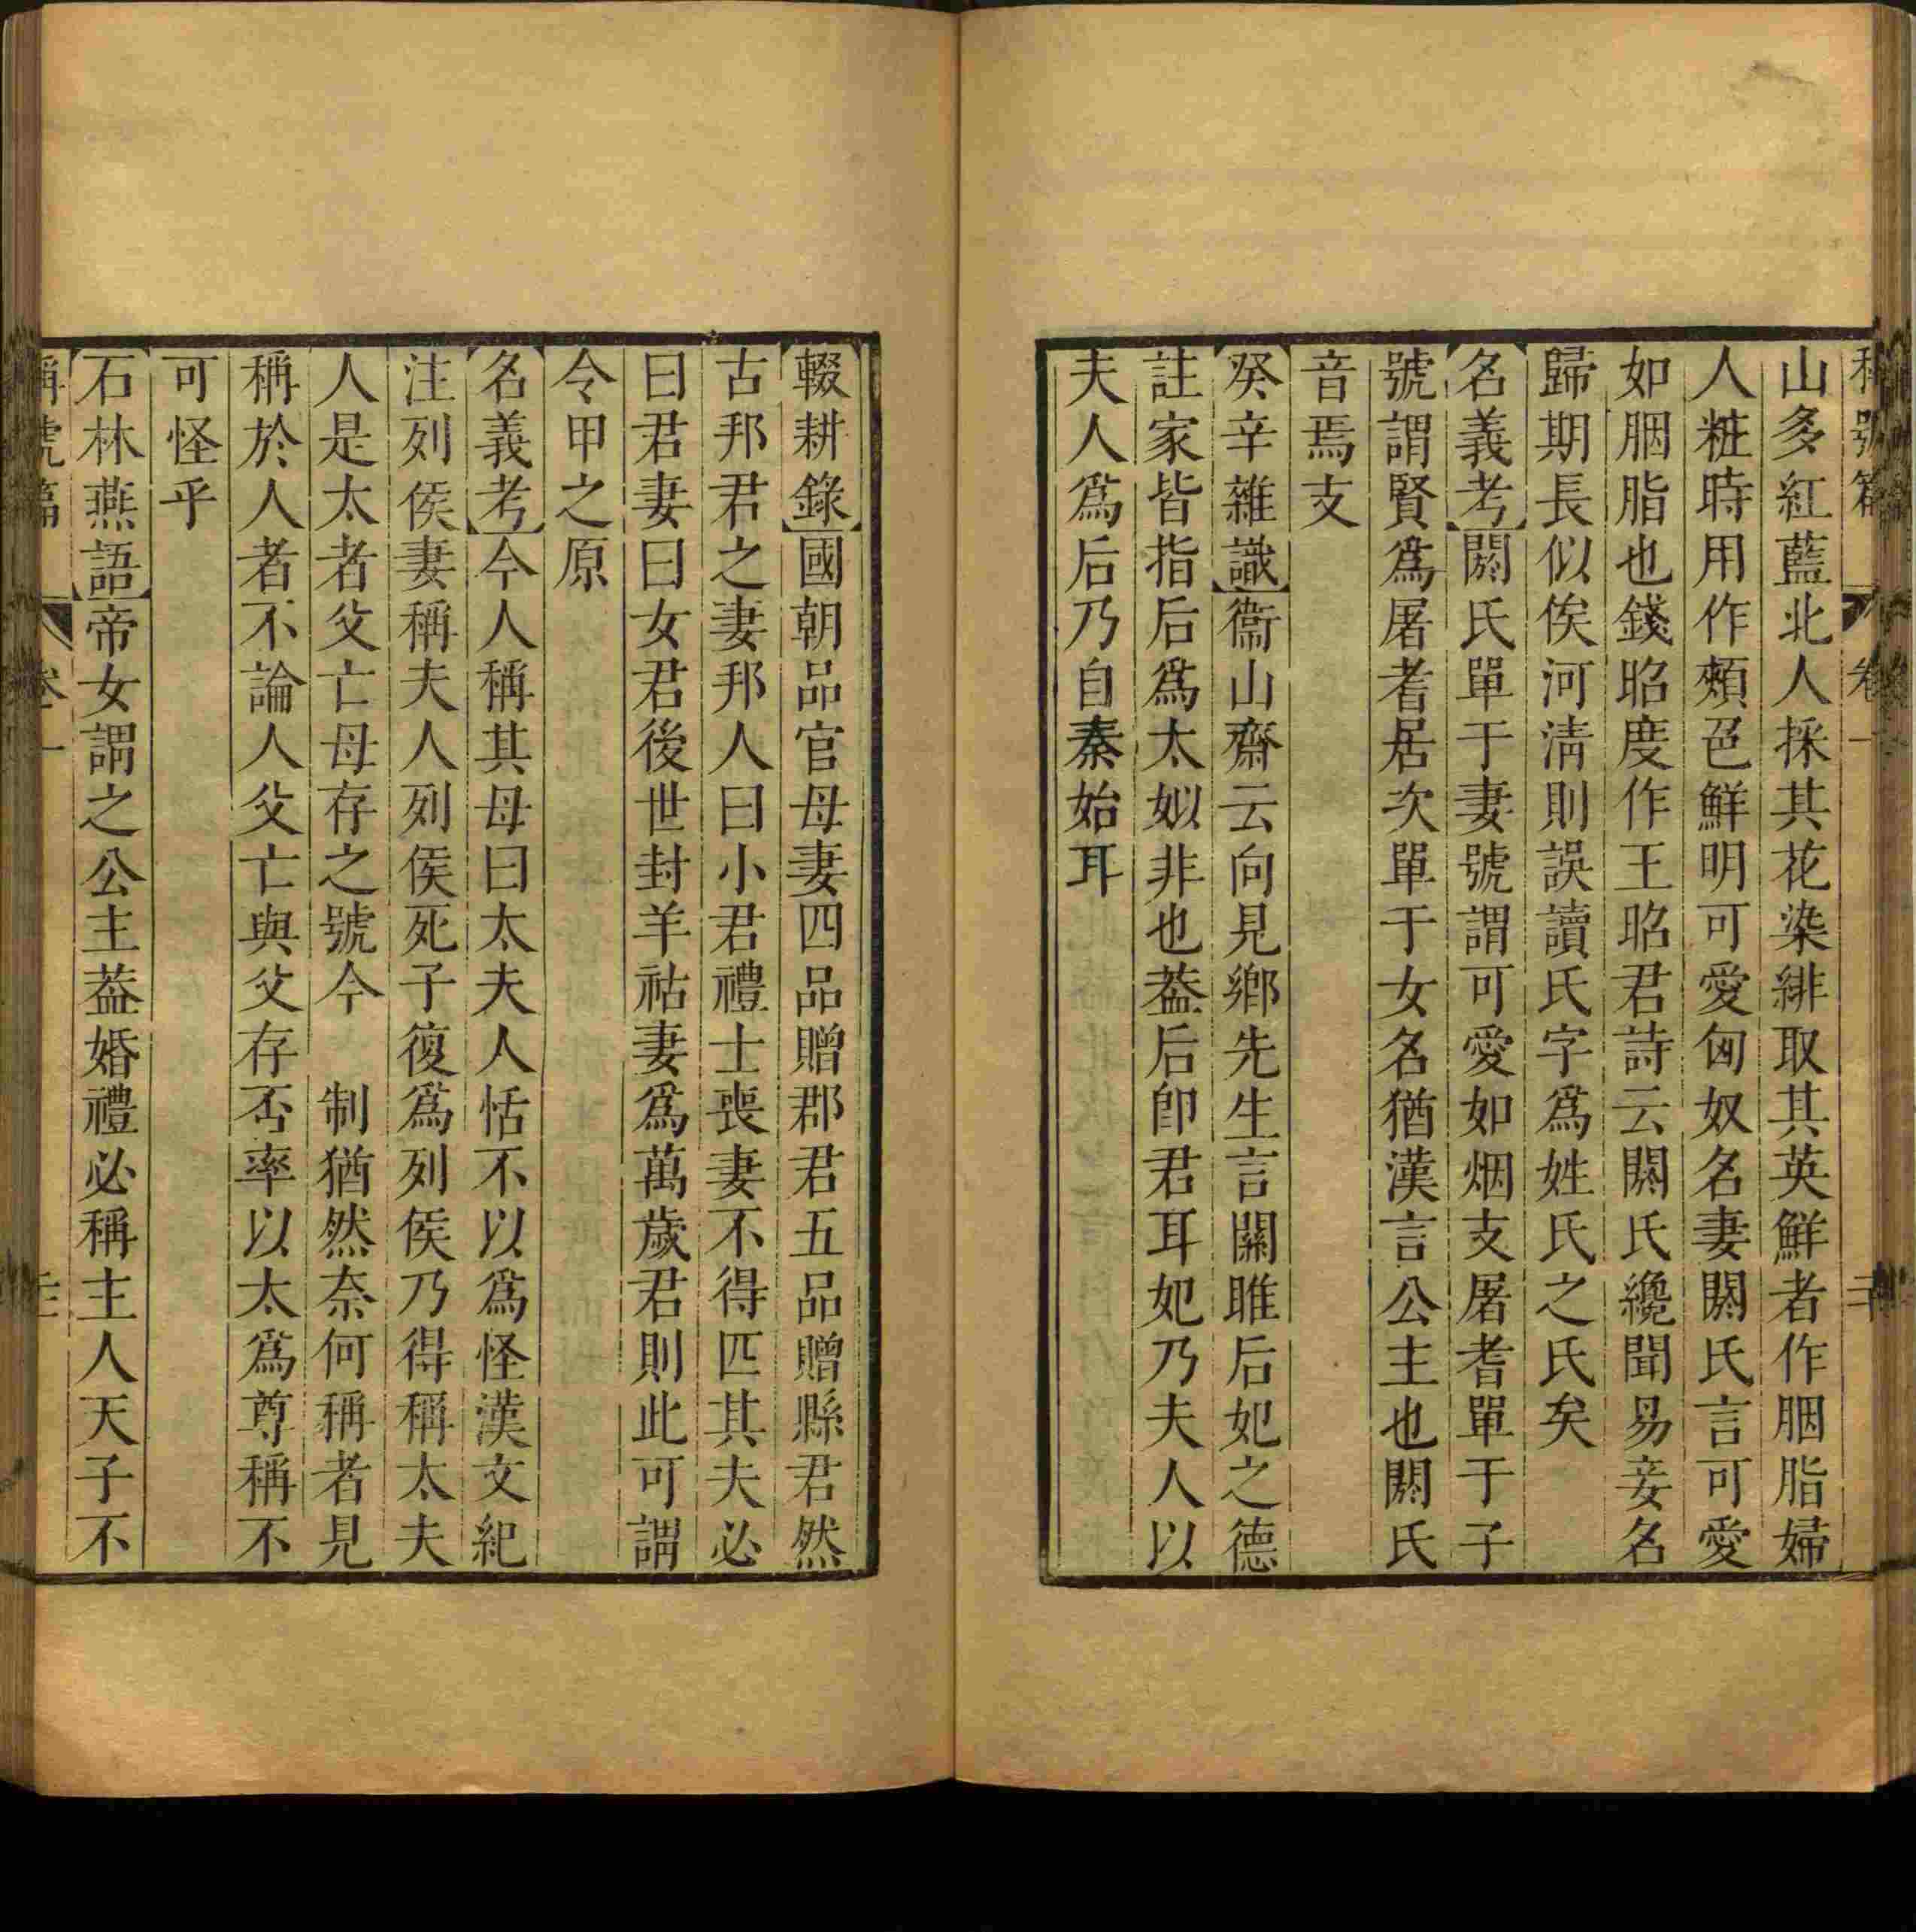 稱號篇 卷一 二十
山多紅藍北人採其花染緋取其英鮮者作胭脂婦
人粧時用作頰色鮮明可愛匈奴名妻閼氏言可愛
如胭脂也錢昭度作王昭君詩云閼氏纔聞易妾名
歸期長似俟河淸則誤讀氏字爲姓氏之氏矣
名義考閼氏單于妻號謂可愛如烟支屠耆單于子
號謂賢爲屠耆居次單于女名猶漢言公主也閼氏
音焉支
癸辛雜識衞山齋云向見鄉先生言關雎后妃之德
註家皆指后爲太姒非也葢后卽君耳妃乃夫人以
夫人爲后乃自秦始耳
輟耕錄國朝品官母妻四品贈郡君五品贈縣君然
古邦君之妻邦人曰小君禮士喪妻不得匹其夫必
曰君妻曰女君後世封羊祜妻爲萬歲君則此可謂
令甲之原
名義考今人稱其母曰太夫人恬不以爲怪漢文紀
注列侯妻稱夫人列侯死子復爲列侯乃得稱太夫
人是太者父亡母存之號今 制猶然奈何稱者見
稱於人者不論人父亡與父存否率以太爲尊稱不
可怪乎
石林燕語帝女謂之公主葢婚禮必稱主人天子不
稱號篇 卷一